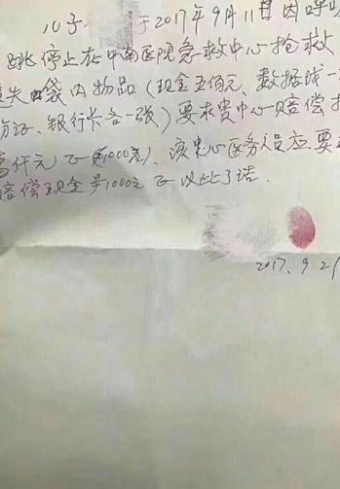 儿子 于2017年9月11日因呼吸
跳停止在中南医院急救中心抢救
丢失口袋内物品（现金五佰元、数据线一
份证、银行卡各一张）要求贵中心赔偿
壹仟元）正（¥1000元）、该中心医务人员应要
赔偿现金¥1000元正以此了结.
2017.9.21